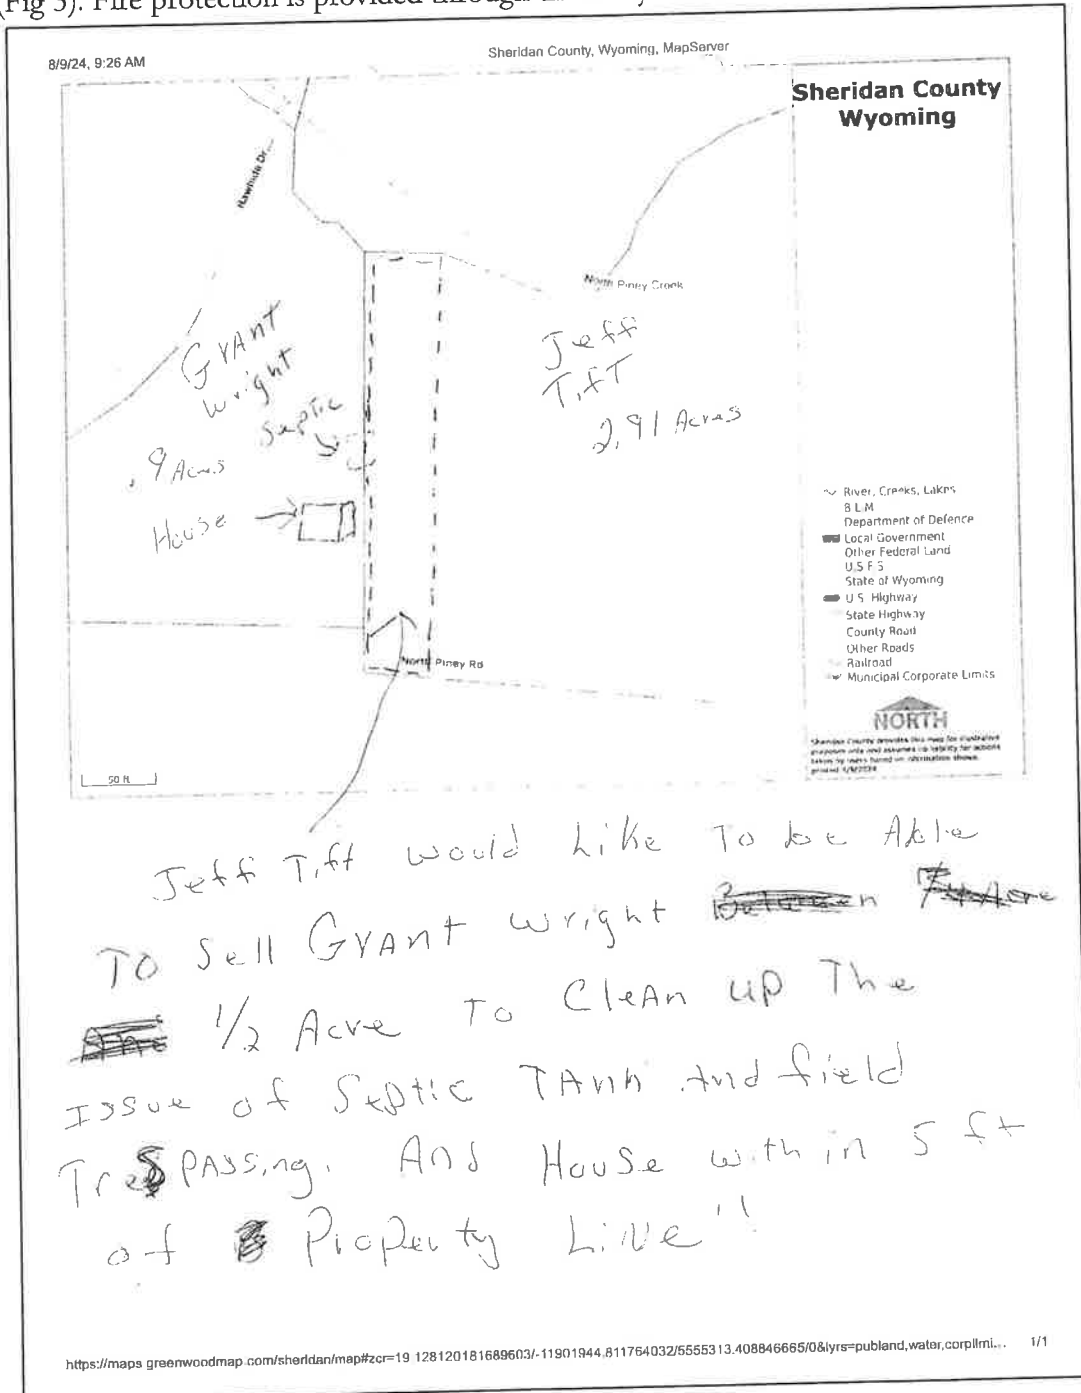 (Fig 3). Fire protection is provided through
8/9/24, 9:26 AM
Sheridan County, Wyoming, MapServer
Sheridan County
Wyoming
Rawhide Dr
North Piney Creek
Grant
Wright
Septic
.9 Acres
House
Jeff
Tift
2.91 Acres
North Piney Rd
50 ft
River, Creeks, Lakes
B L M
Department of Defence
Local Government
Other Federal Land
U.S F S
State of Wyoming
U S Highway
State Highway
County Road
Other Roads
Railroad
Municipal Corporate Limits
NORTH
Sheridan County provides this map for illustrative
purposes only and assumes no liability for actions
taken by users based on information shown.
printed
Jeff Tift would Like To be Able
To Sell Grant Wright
1/2 Acre To Clean up The
Issue of Septic Tank And field
Tresspassing. And House within 5 ft
of Property Line"!
https://maps greenwoodmap.com/sheridan/map#zcr=19 128120181689603/-11901944.811764032/5555313.408846665/0&lyrs=publand,water,corplimi... 1/1